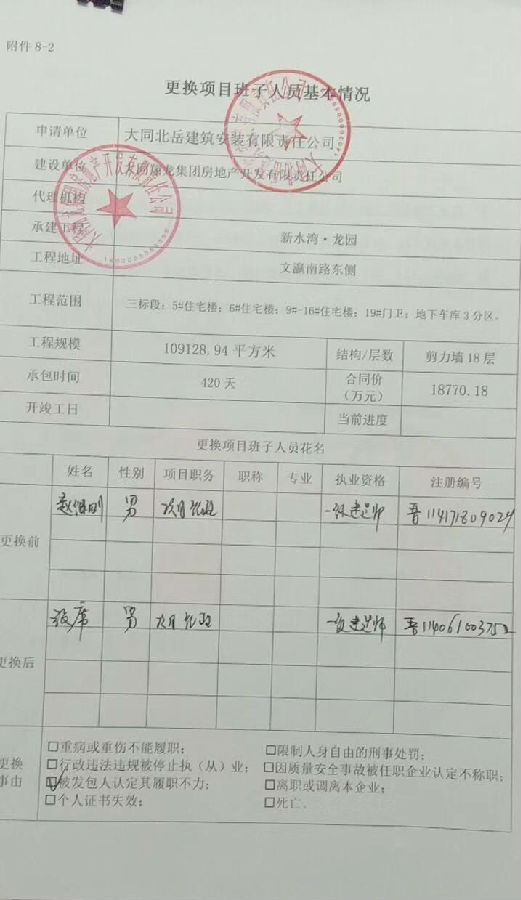 附件 8-2
更换项目班子人员基本情况
申请单位 大同北岳建筑安装有限责任公司
建设单位 集团房地产开发有限责任公司
代理机构
承建工程 新水湾·龙园
工程地址 文瀛南路东侧
工程范围 三标段：5#住宅楼；6#住宅楼；9#-16#住宅楼；19#门卫；地下车库3分区。
工程规模 109128.94 平方米 结构/层数 剪力墙 18 层
承包时间 420 天 合同价（万元） 18770.18
开竣工日 当前进度
更换项目班子人员花名
姓名 性别 项目职务 职称 专业 执业资格 注册编号
更换前 男 项目经理 一级建造师 晋114171809024
更换后 男 项目经理 一级建造师
更换事由
□重病或重伤不能履职； □限制人身自由的刑事处罚；
□行政违法违规被停止执（从）业； □因质量安全事故被任职企业认定不称职；
☑被发包人认定其履职不力； □离职或调离本企业；
□个人证书失效； □死亡。